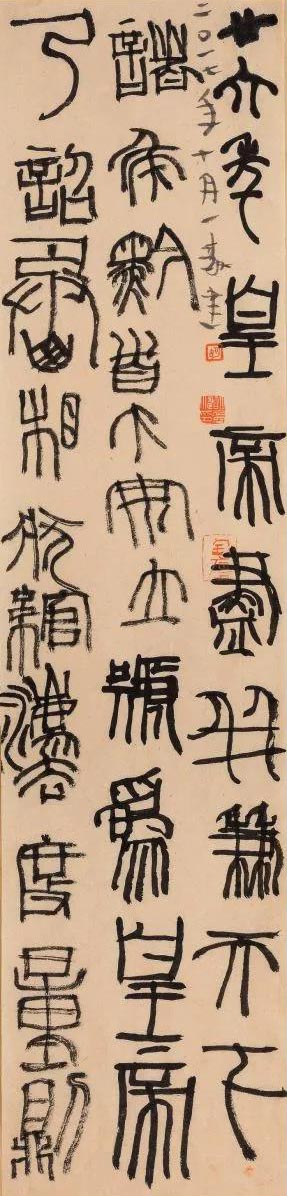 廿六年皇帝盡并兼天下
諸侯黔首大安立號為皇帝
乃詔丞相狀綰灋度量則
二〇一七年十月